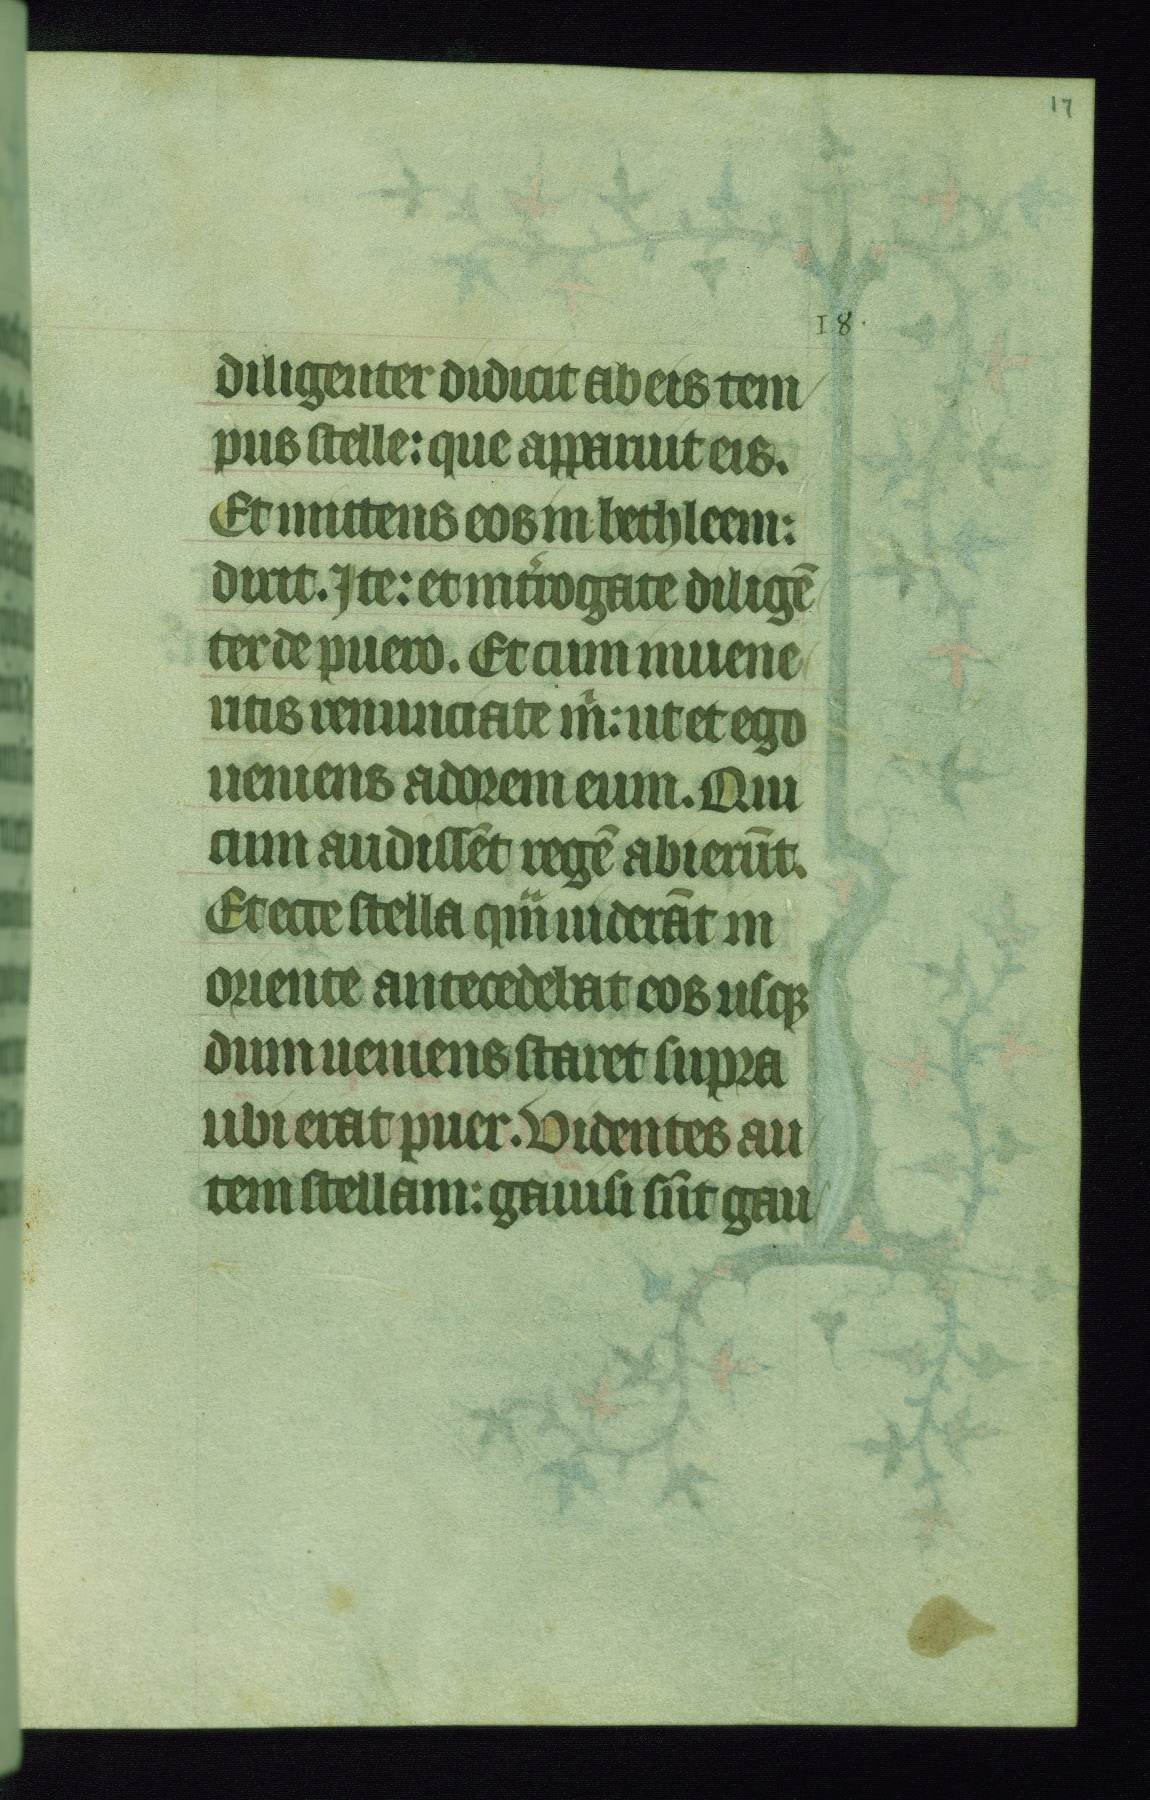 17
18.
diligenter didicit ab eis tem
pus stelle: que apparuit eis.
Et mittens eos in bethleem:
dixit. Ite: et int̾rogate diligē
ter de puero. Et cum inuene
ritis renunciate m̅: ut et ego
ueniens adorem eum. Qui
cum audissēt regē abierūt.
Et ecce stella quā uiderāt in
oriente antecedebat eos usqꝫ
dum ueniens staret supra
ubi erat puer. Videntes au
tem stellam: gauisi sūt gau